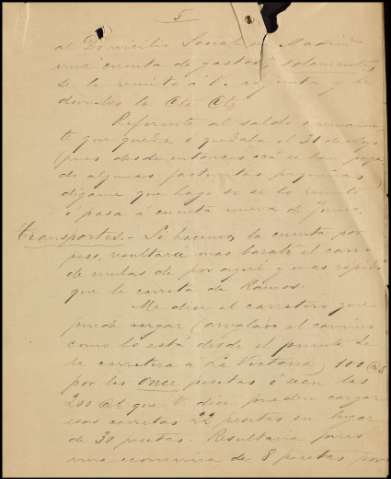 5
al Domicilio Social en Madrid
una cuenta de gastos solamente
se la remito á V. adjunta y
de la Cta Cte
Referente al saldo
te que queda ó quedaba el 31 de Mayo
(pues desde entonces acá se han paga
do algunas facturitas pequeñas)
dígame que hago si se lo remito
ó pasa á cuenta nueva de Junio.
Transportes.- Si hacemos la cuenta por
peso, resultará mas barato el carro
de mulas de por aquí y mas rápido
que la carreta de Ramos.
Me dice el carretero que
puede cargar (arreglado el camino
como lo está desde el puente de
la carretera á La Victoria) 100
por las once pesetas ó sean las
200 que V. dice pueden cargar
esas carretas 22 pesetas en lugar
de 30 pesetas. Resultaría pues
una economía de 8 pesetas por